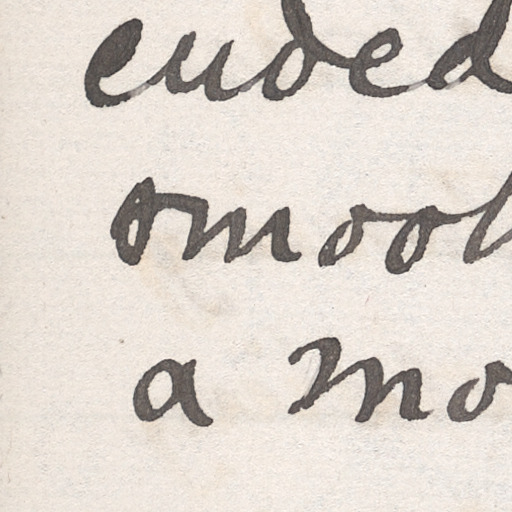 ended
smooth
a mo